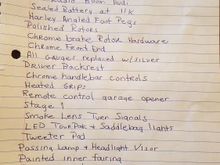 Sealed Battery at 11K
Harley Angled Foot Pegs
Polished Rotors
Chrome brake Rotor Hardware
Chrome Front End
All Gauges replaced w/silver
Driver Backrest
Chrome handlebar controls
Heated Grips
Remote control garage opener
Stage 1
Smoke Lens Turn Signals
LED TourPak & Saddlebag lights
Tweeter Pods
Passing Lamp & Headlight Visor
Painted inner fairing